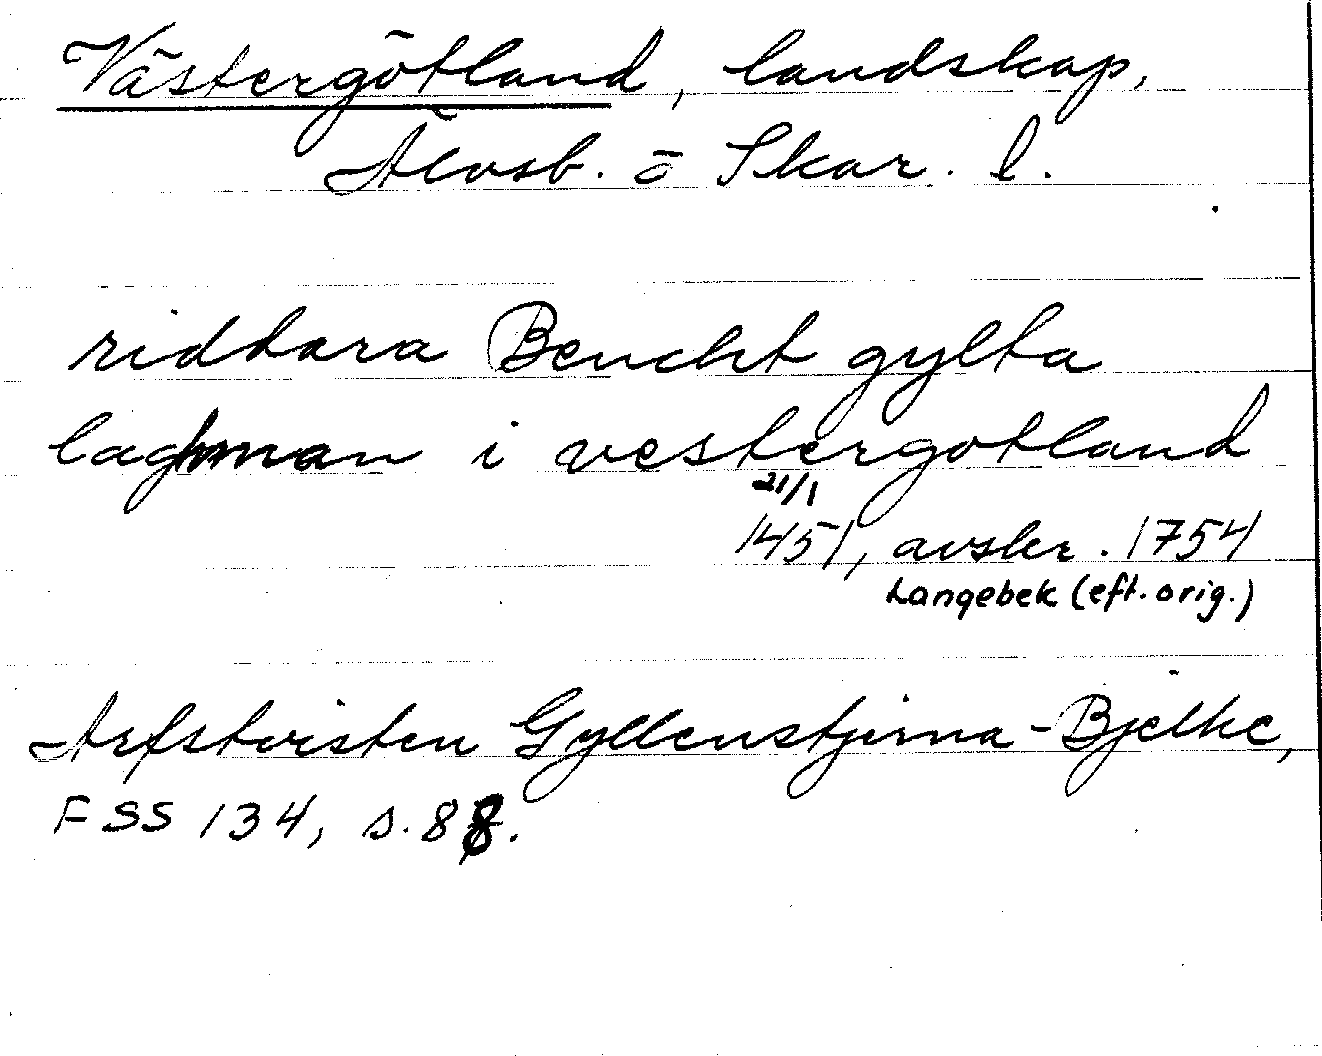 Västergötland, landskap,
Älvsb. o Skar. l.
riddara Bencht gylta
laghman i vestergotland
21/1
1451, avskr. 1754
Langebek (eft. orig.)
Arfstvisten Gyllenstjerna-Bjelke,
FSS 134, s. 88.